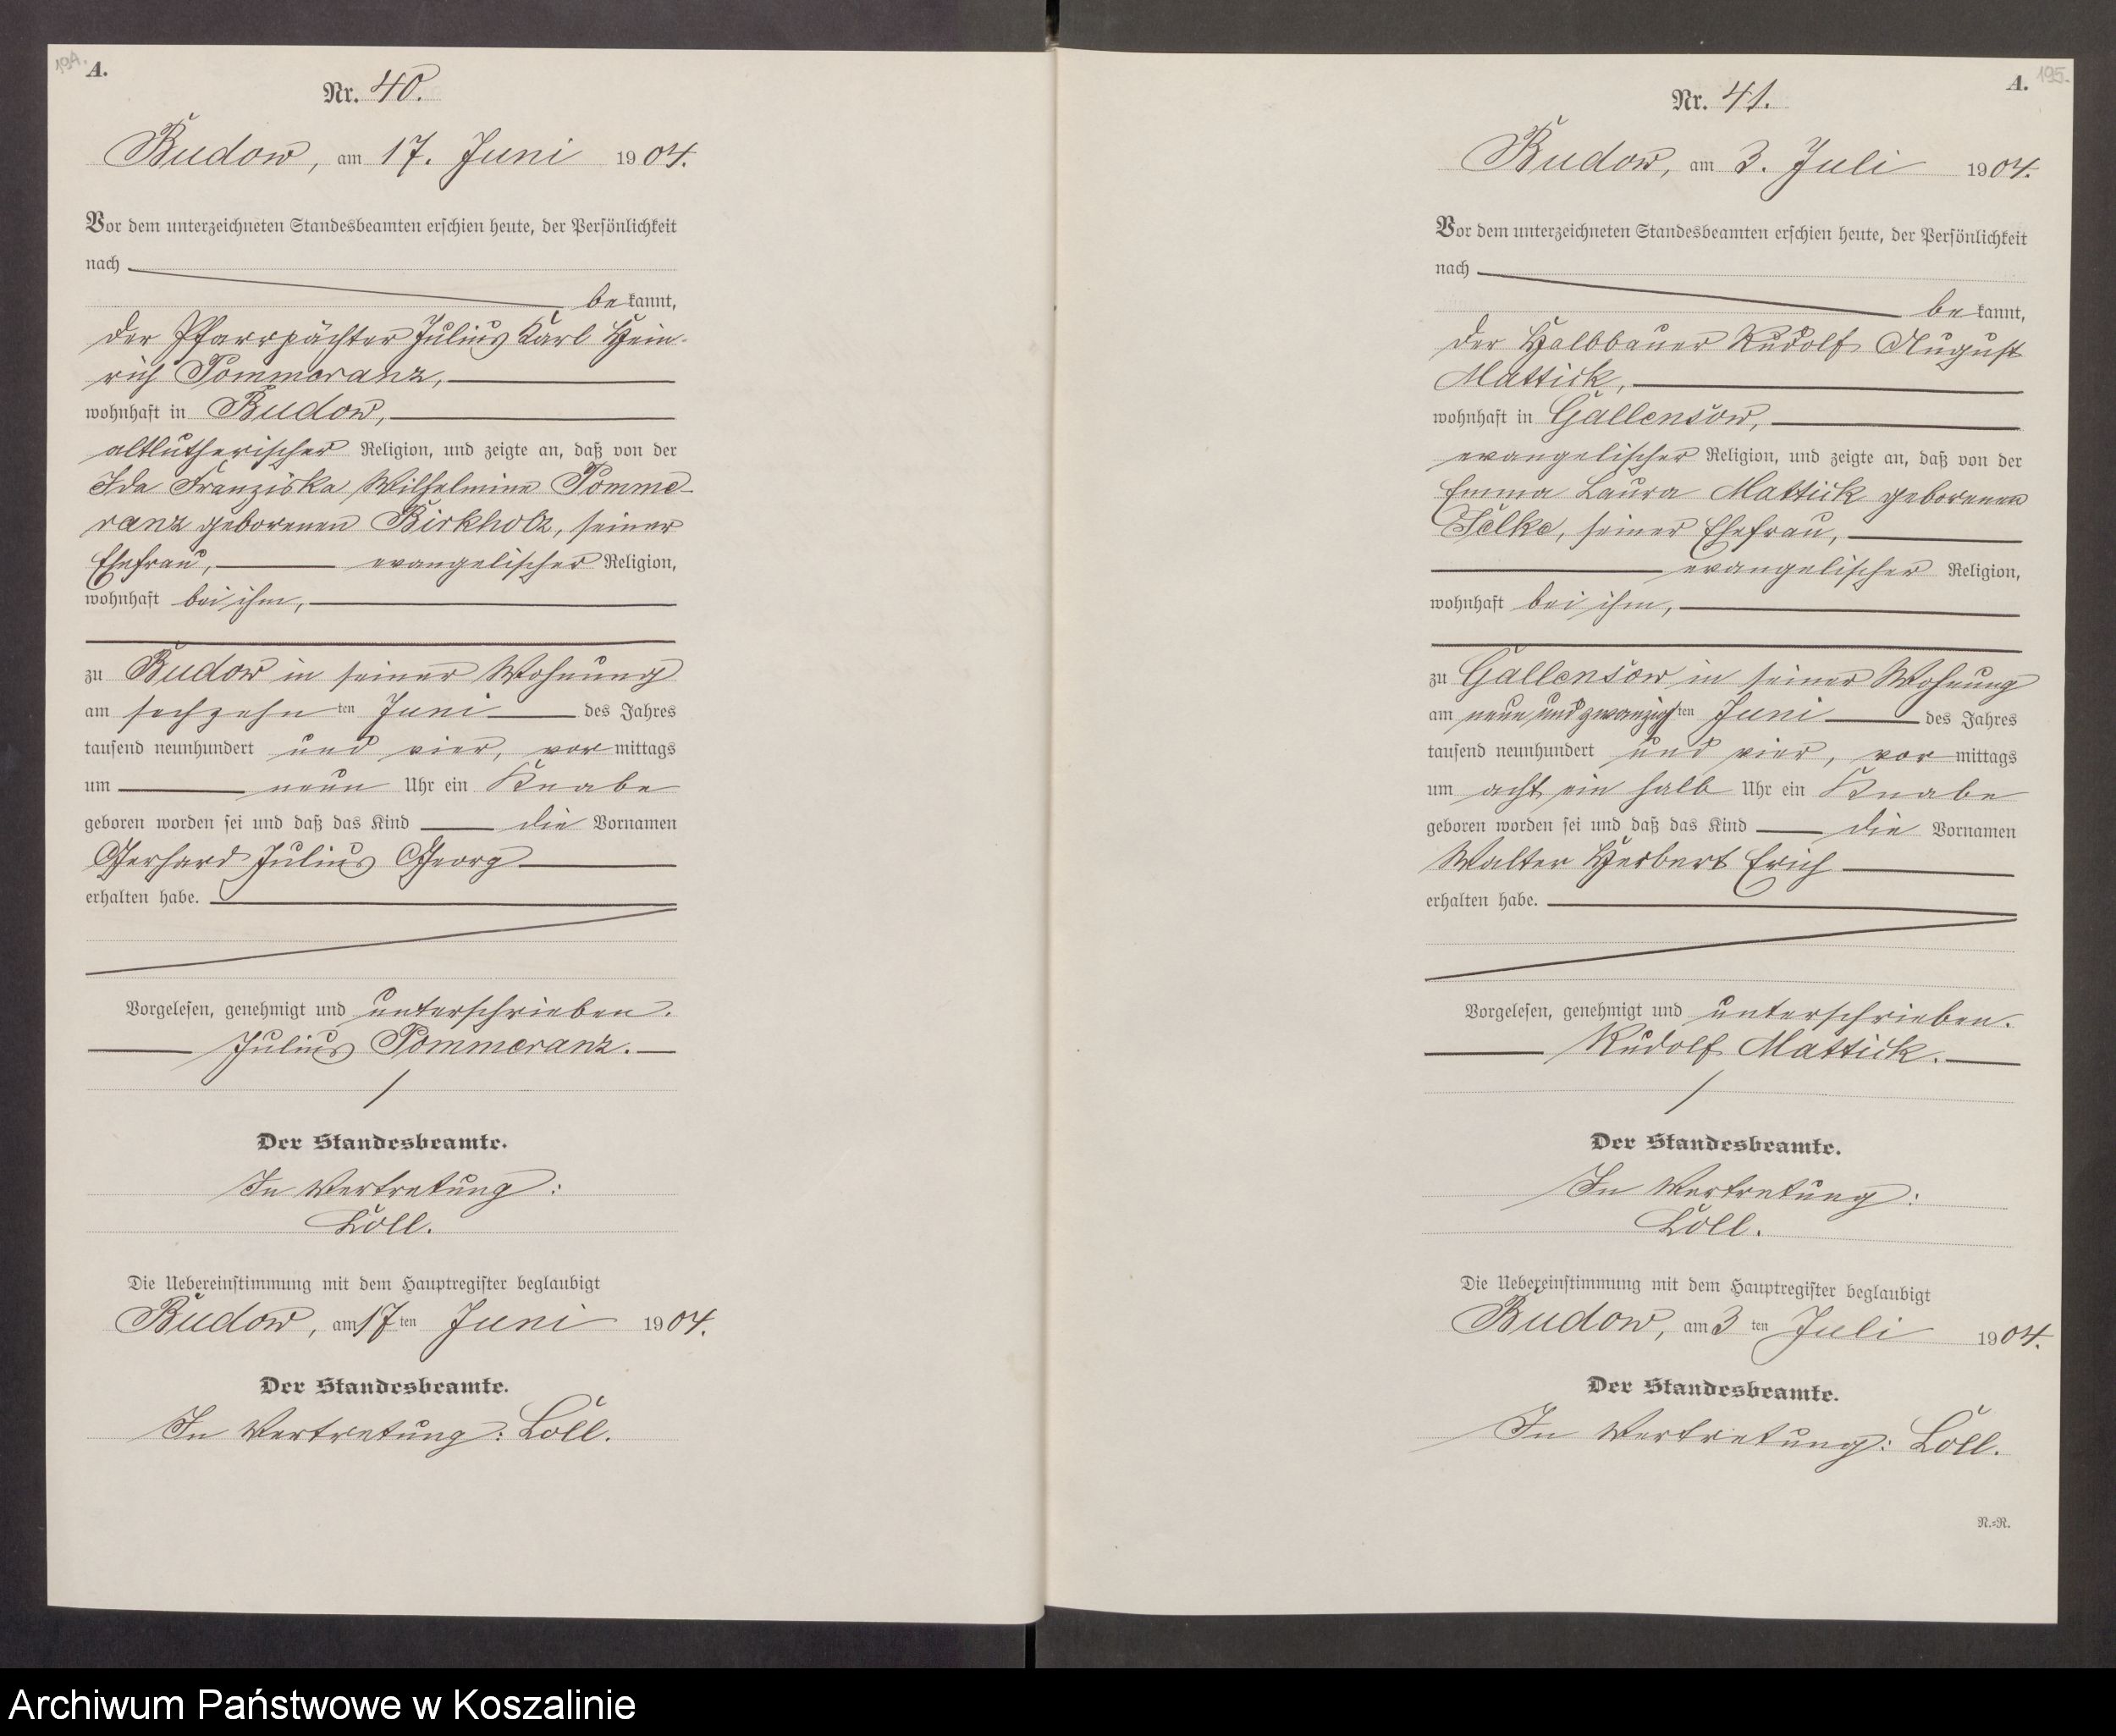 194.
A.
Nr. 40.
Budow, am 17. Juni 1904.
Vor dem unterzeichneten Standesbeamten erschien heute, der Persönlichkeit
nach
bekannt,
der Pfarrpächter Julius Karl Hein-
rich Pommeranz,
wohnhaft in Budow,
altlutherischer Religion, und zeigte an, daß von der
Ida Franziska Wilhelmine Pomme-
ranz geborenen Birkholz, seiner
Ehefrau, evangelischer Religion,
wohnhaft bei ihm,
zu Budow in seiner Wohnung
am sechzehnten Juni des Jahres
tausend neunhundert und vier, vormittags
um neun Uhr ein Knabe
geboren worden sei und daß das Kind die Vornamen
Gerhard Julius Georg
erhalten habe.
Vorgelesen, genehmigt und unterschrieben.
Julius Pommeranz.
Der Standesbeamte.
In Vertretung:
Löll.
Die Uebereinstimmung mit dem Hauptregister beglaubigt
Budow, am 17ten Juni 1904.
Der Standesbeamte.
In Vertretung: Löll.
A.
195.
Nr. 41.
Budow, am 3. Juli 1904.
Vor dem unterzeichneten Standesbeamten erschien heute, der Persönlichkeit
nach
bekannt,
der Halbbauer Rudolf August
Mattick,
wohnhaft in Gallensow,
evangelischer Religion, und zeigte an, daß von der
Emma Laura Mattick geborenen
Selke, seiner Ehefrau,
evangelischer Religion,
wohnhaft bei ihm,
zu Gallensow in seiner Wohnung
am neunundzwanzigsten Juni des Jahres
tausend neunhundert und vier, vormittags
um acht ein halb Uhr ein Knabe
geboren worden sei und daß das Kind die Vornamen
Walter Herbert Erich
erhalten habe.
Vorgelesen, genehmigt und unterschrieben.
Rudolf Mattick.
Der Standesbeamte.
In Vertretung:
Löll.
Die Uebereinstimmung mit dem Hauptregister beglaubigt
Budow, am 3ten Juli 1904.
Der Standesbeamte.
In Vertretung: Löll.
R.=R.
Archiwum Państwowe w Koszalinie